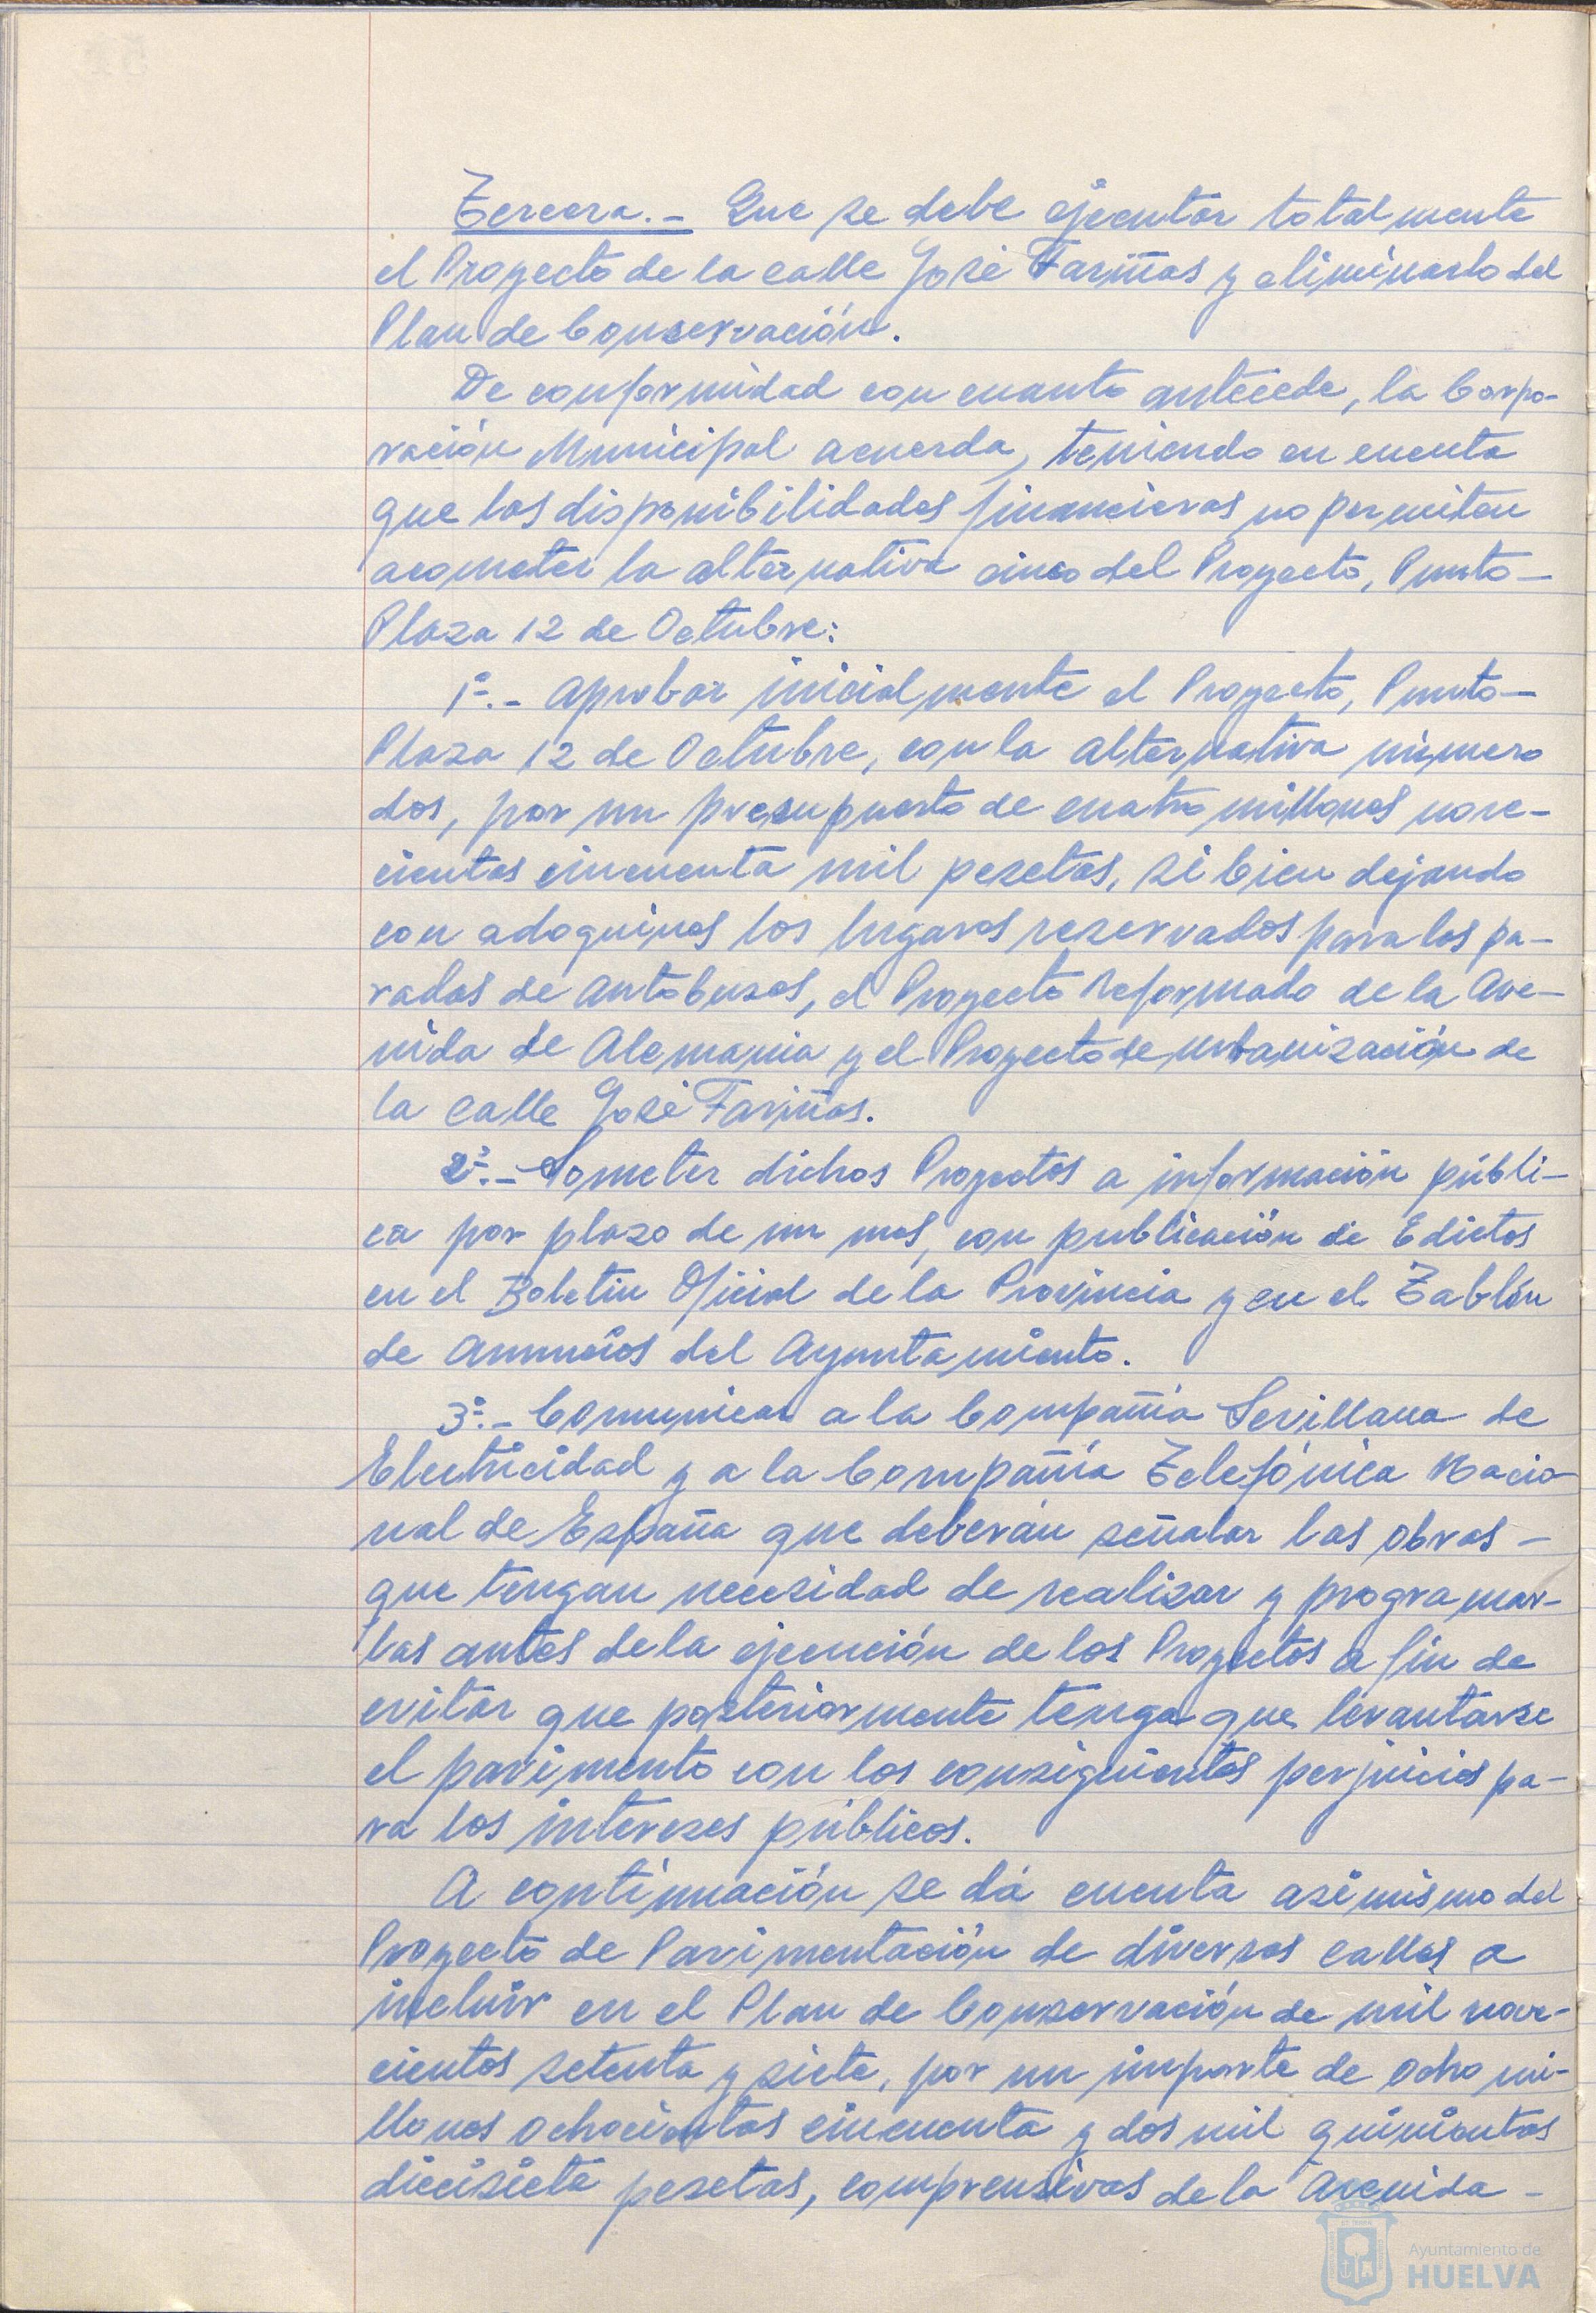 Tercera.- Que se debe ejecutar totalmente
el Proyecto de la calle José Fariñas y eliminarlo del
Plan de Conservación.
De conformidad con cuanto antecede, la Corpo-
ración Municipal acuerda, teniendo en cuenta
que las disponibilidades financieras no permiten
acometer la alternativa cinco del Proyecto, Punto-
Plaza 12 de Octubre:
1º.- Aprobar inicialmente el Proyecto, Punto-
Plaza 12 de Octubre, con la alternativa número
dos, por un presupuesto de cuatro millones nove-
cientas cincuenta mil pesetas, si bien dejando
con adoquines los lugares reservados para las pa-
radas de autobuses, el Proyecto Reformado de la Ave-
nida de Alemania y el Proyecto de urbanización de
la calle José Fariñas.
2º.- Someter dichos Proyectos a información públi-
ca por plazo de un mes, con publicación de Edictos
en el Boletín Oficial de la Provincia y en el Tablón
de anuncios del Ayuntamiento.
3º.- Comunicar a la Compañía Sevillana de
Electricidad y a la Compañía Telefónica Nacio-
nal de España que deberán señalar las obras -
que tengan necesidad de realizar y programar-
las antes de la ejecución de los Proyectos a fin de
evitar que posteriormente tenga que levantarse
el pavimento con los consiguientes perjuicios pa-
ra los intereses públicos.
A continuación se dá cuenta asimismo del
Proyecto de Pavimentación de diversas calles a
incluir en el Plan de Conservación de mil nove-
cientos setenta y siete, por un importe de ocho mi-
llones ochocientas cincuenta y dos mil quinientas
diecisiete pesetas, comprensivas de la Avenida -
Ayuntamiento de
HUELVA